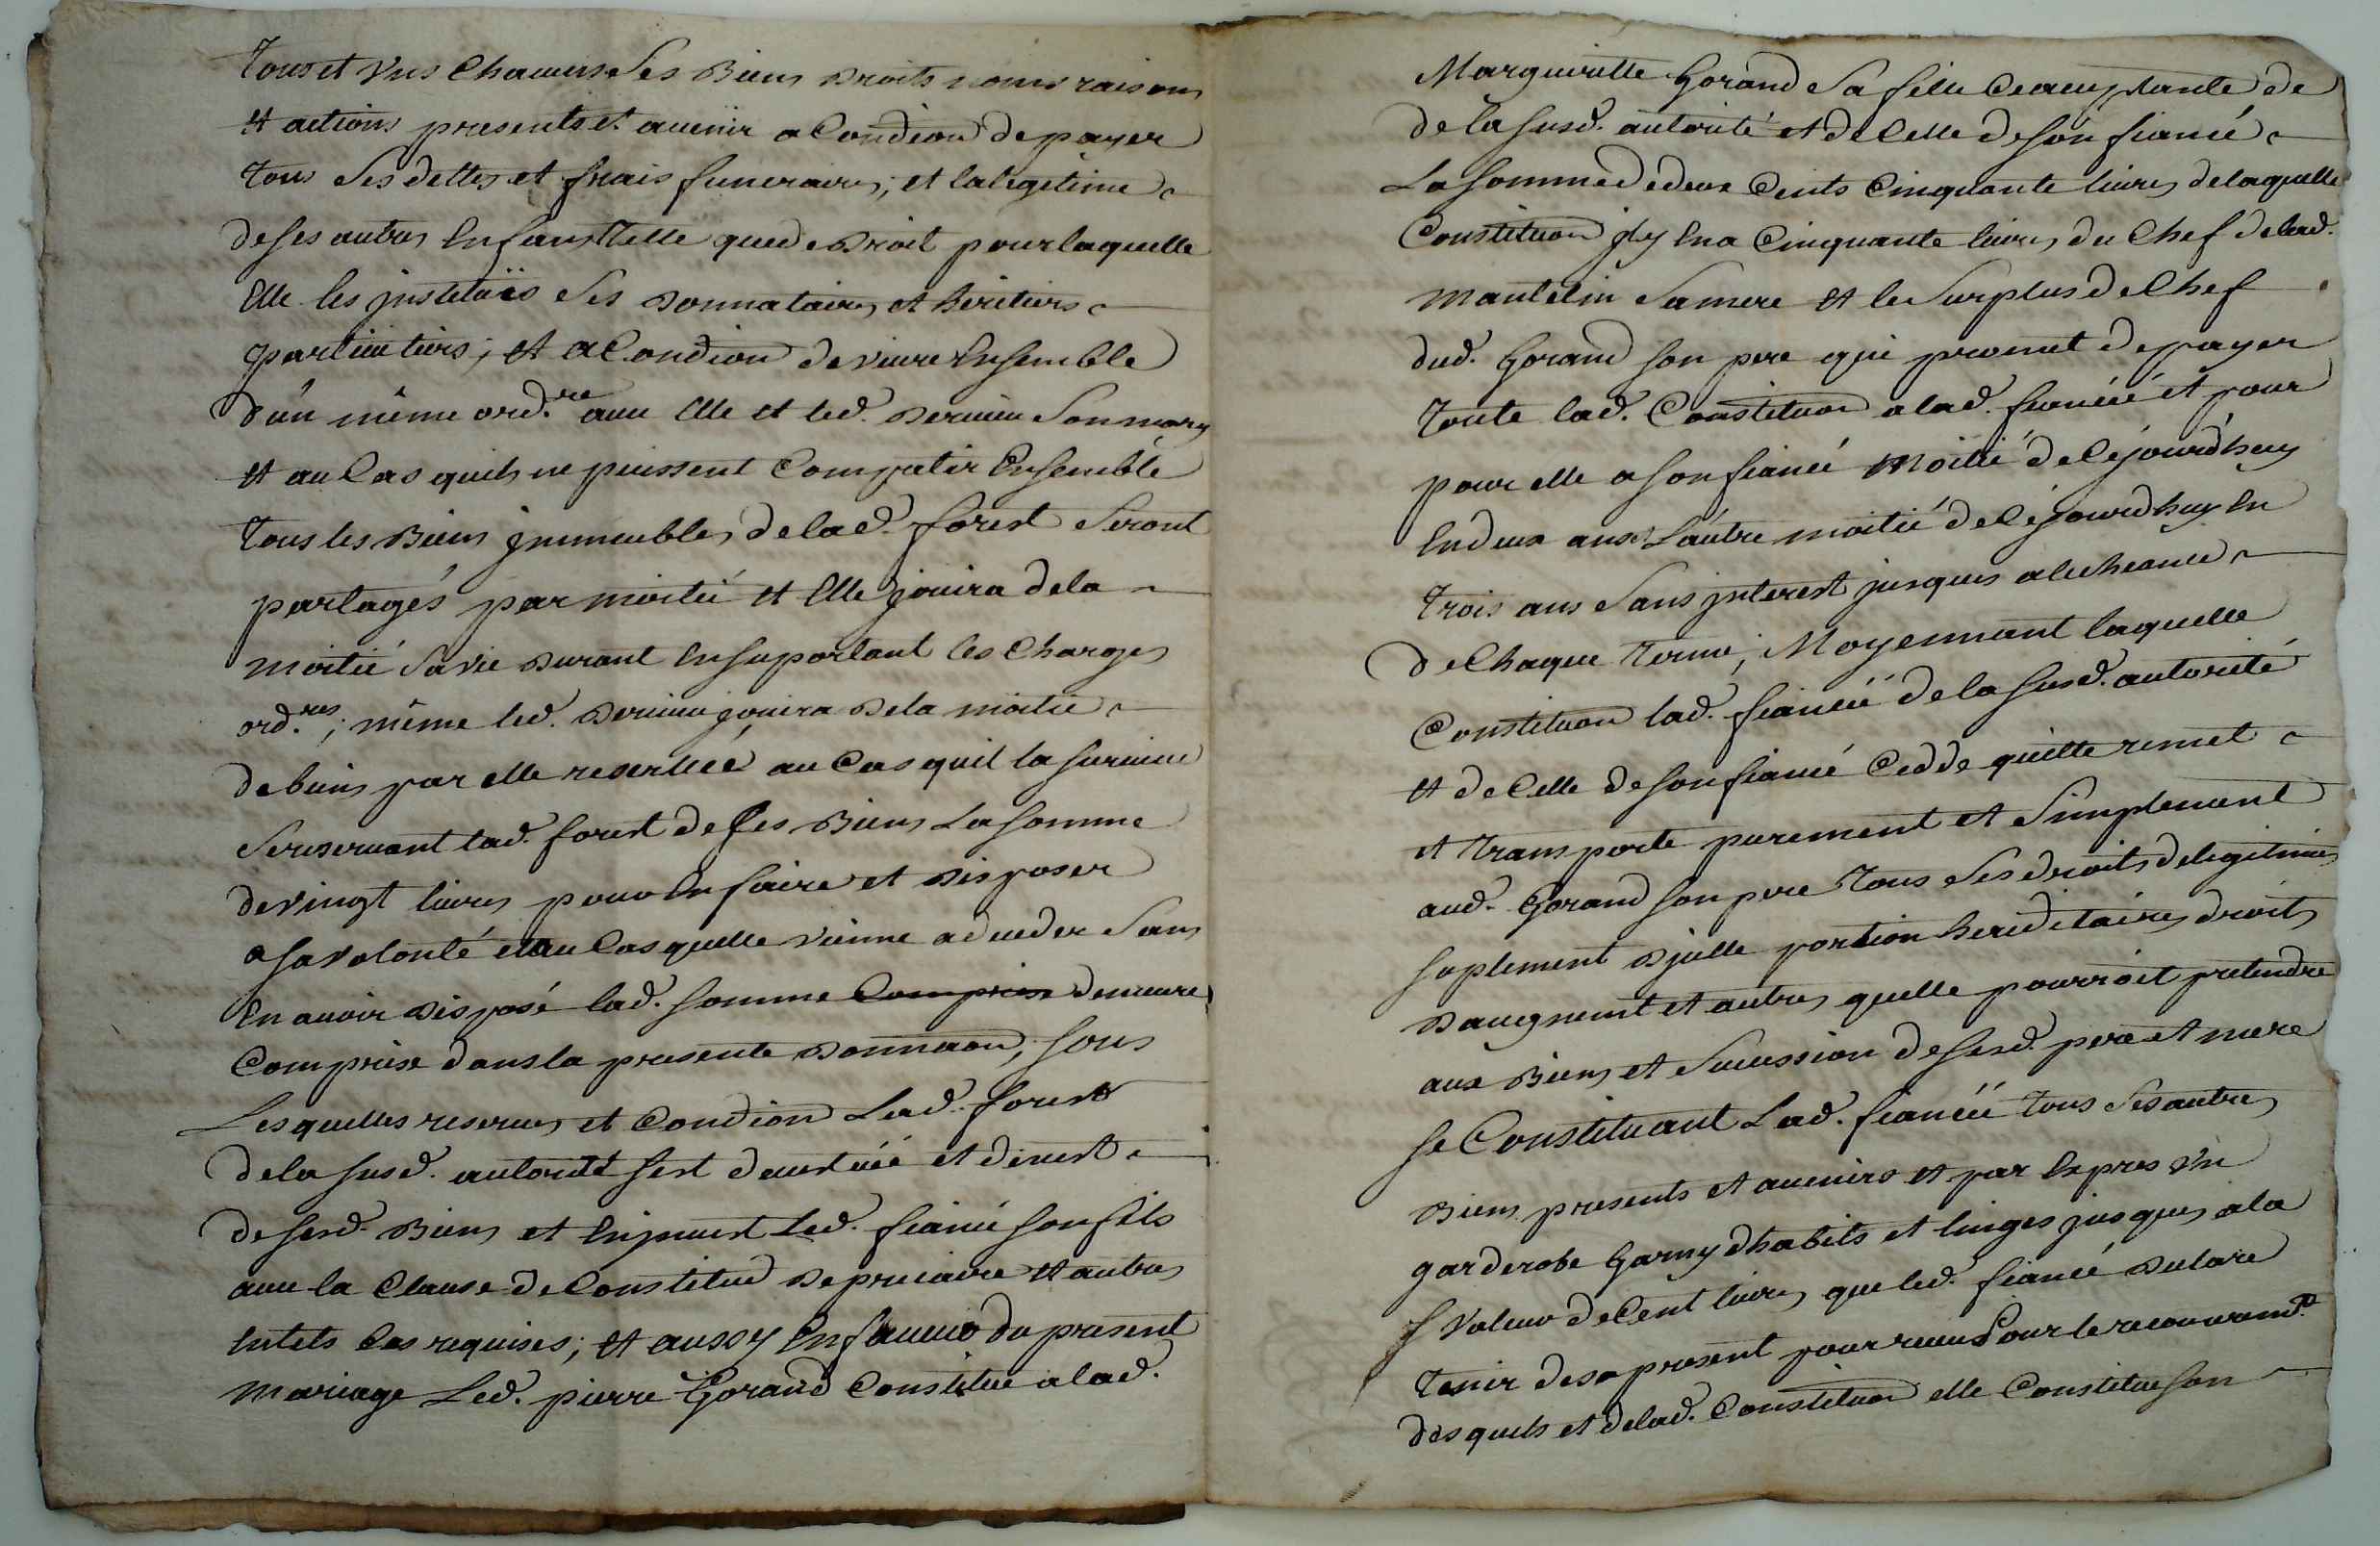 Tous et Uns Chacuns Ses Biens Droits noms raisons
et actions presents et avenir a Condion de payer
tous Ses dettes et frais funeraires; et la legitime
de ses autres Enfans Telle que de Droit pour laquelle
Elle les jnstituës Ses Donnataires et heritiers
particuliers; et a Condion de vivre Ensemble
d'un même ord.re avec Elle et led. Son mary
et au Cas quils ne puissent Compatir Ensemble
Tous les Biens jmmeubles de lad. forest Seront
partagés par moitié et Elle jouira de la
moitié Sa vie Durant En suportant les Charges
ord.res; même led. jouira De la moitié
de biens par elle reservéé au Cas quil la survive
Se reservant lad. forest de ses Biens La somme
de vingt livres pour En faire et Disposer
a sa volonté et au Cas quelle vienne a deceder Sans
En avoir Disposé lad. somme Comprise demeure
Comprise dans la presente Donnaon; sous
Les quelles reserves et Condion Lad. forest
de la susd. autorité sest devestuéé et divest
de sesd. Biens et En jnvest led. fiancé son fils
avec la Clause de Constitud De precaire et autres
En tels Cas requises; et aussy En faveur du present
mariage Led. pierre Gorand Constitue a lad.
Margueritte Gorand Sa fille Ceacceptante de
de la susd. autorité et de Celle de son fiancé
La somme de deux Cents Cinquante livres de laquelle
Constituon jl y En a Cinquante livres du Chef de lad.
Mantelin Sa mere et le Surplus de Chef
dud. Gorand son pere qui promet de payer
Toute lad. Constituon a lad. fiancéé et pour
pour elle a son fiancé Moitié de Cejourdhuy
En deux ans L'autre moitié de Cejourdhuy En
Trois ans Sans jnterest jusques a lecheance
de Chaque Terme; Moyennant laquelle
Constituon lad. fiancéé de la susd. autorité
et de Celle de son fiancé Cedde quitte remet
et Transporte purement et Simplement
aud. Gorand son pere Tous Ses droits de legitime
suplement Djcelle portion hereditaires droits
Daugment et autres quelle pourroit pretendre
aux Biens et Succession de sesd. pere et mere
se Constituant Lad. fiancéé tous Ses autres
Biens presents et avenirs et par Expres Un
garderobe Garny dhabits et linges jusques a la
valeur de Cent livres que led. fiancé Declare
Tenir des a present pour receu Pour le recouvrem.t
des quels et de lad. Constituon elle Constitue son